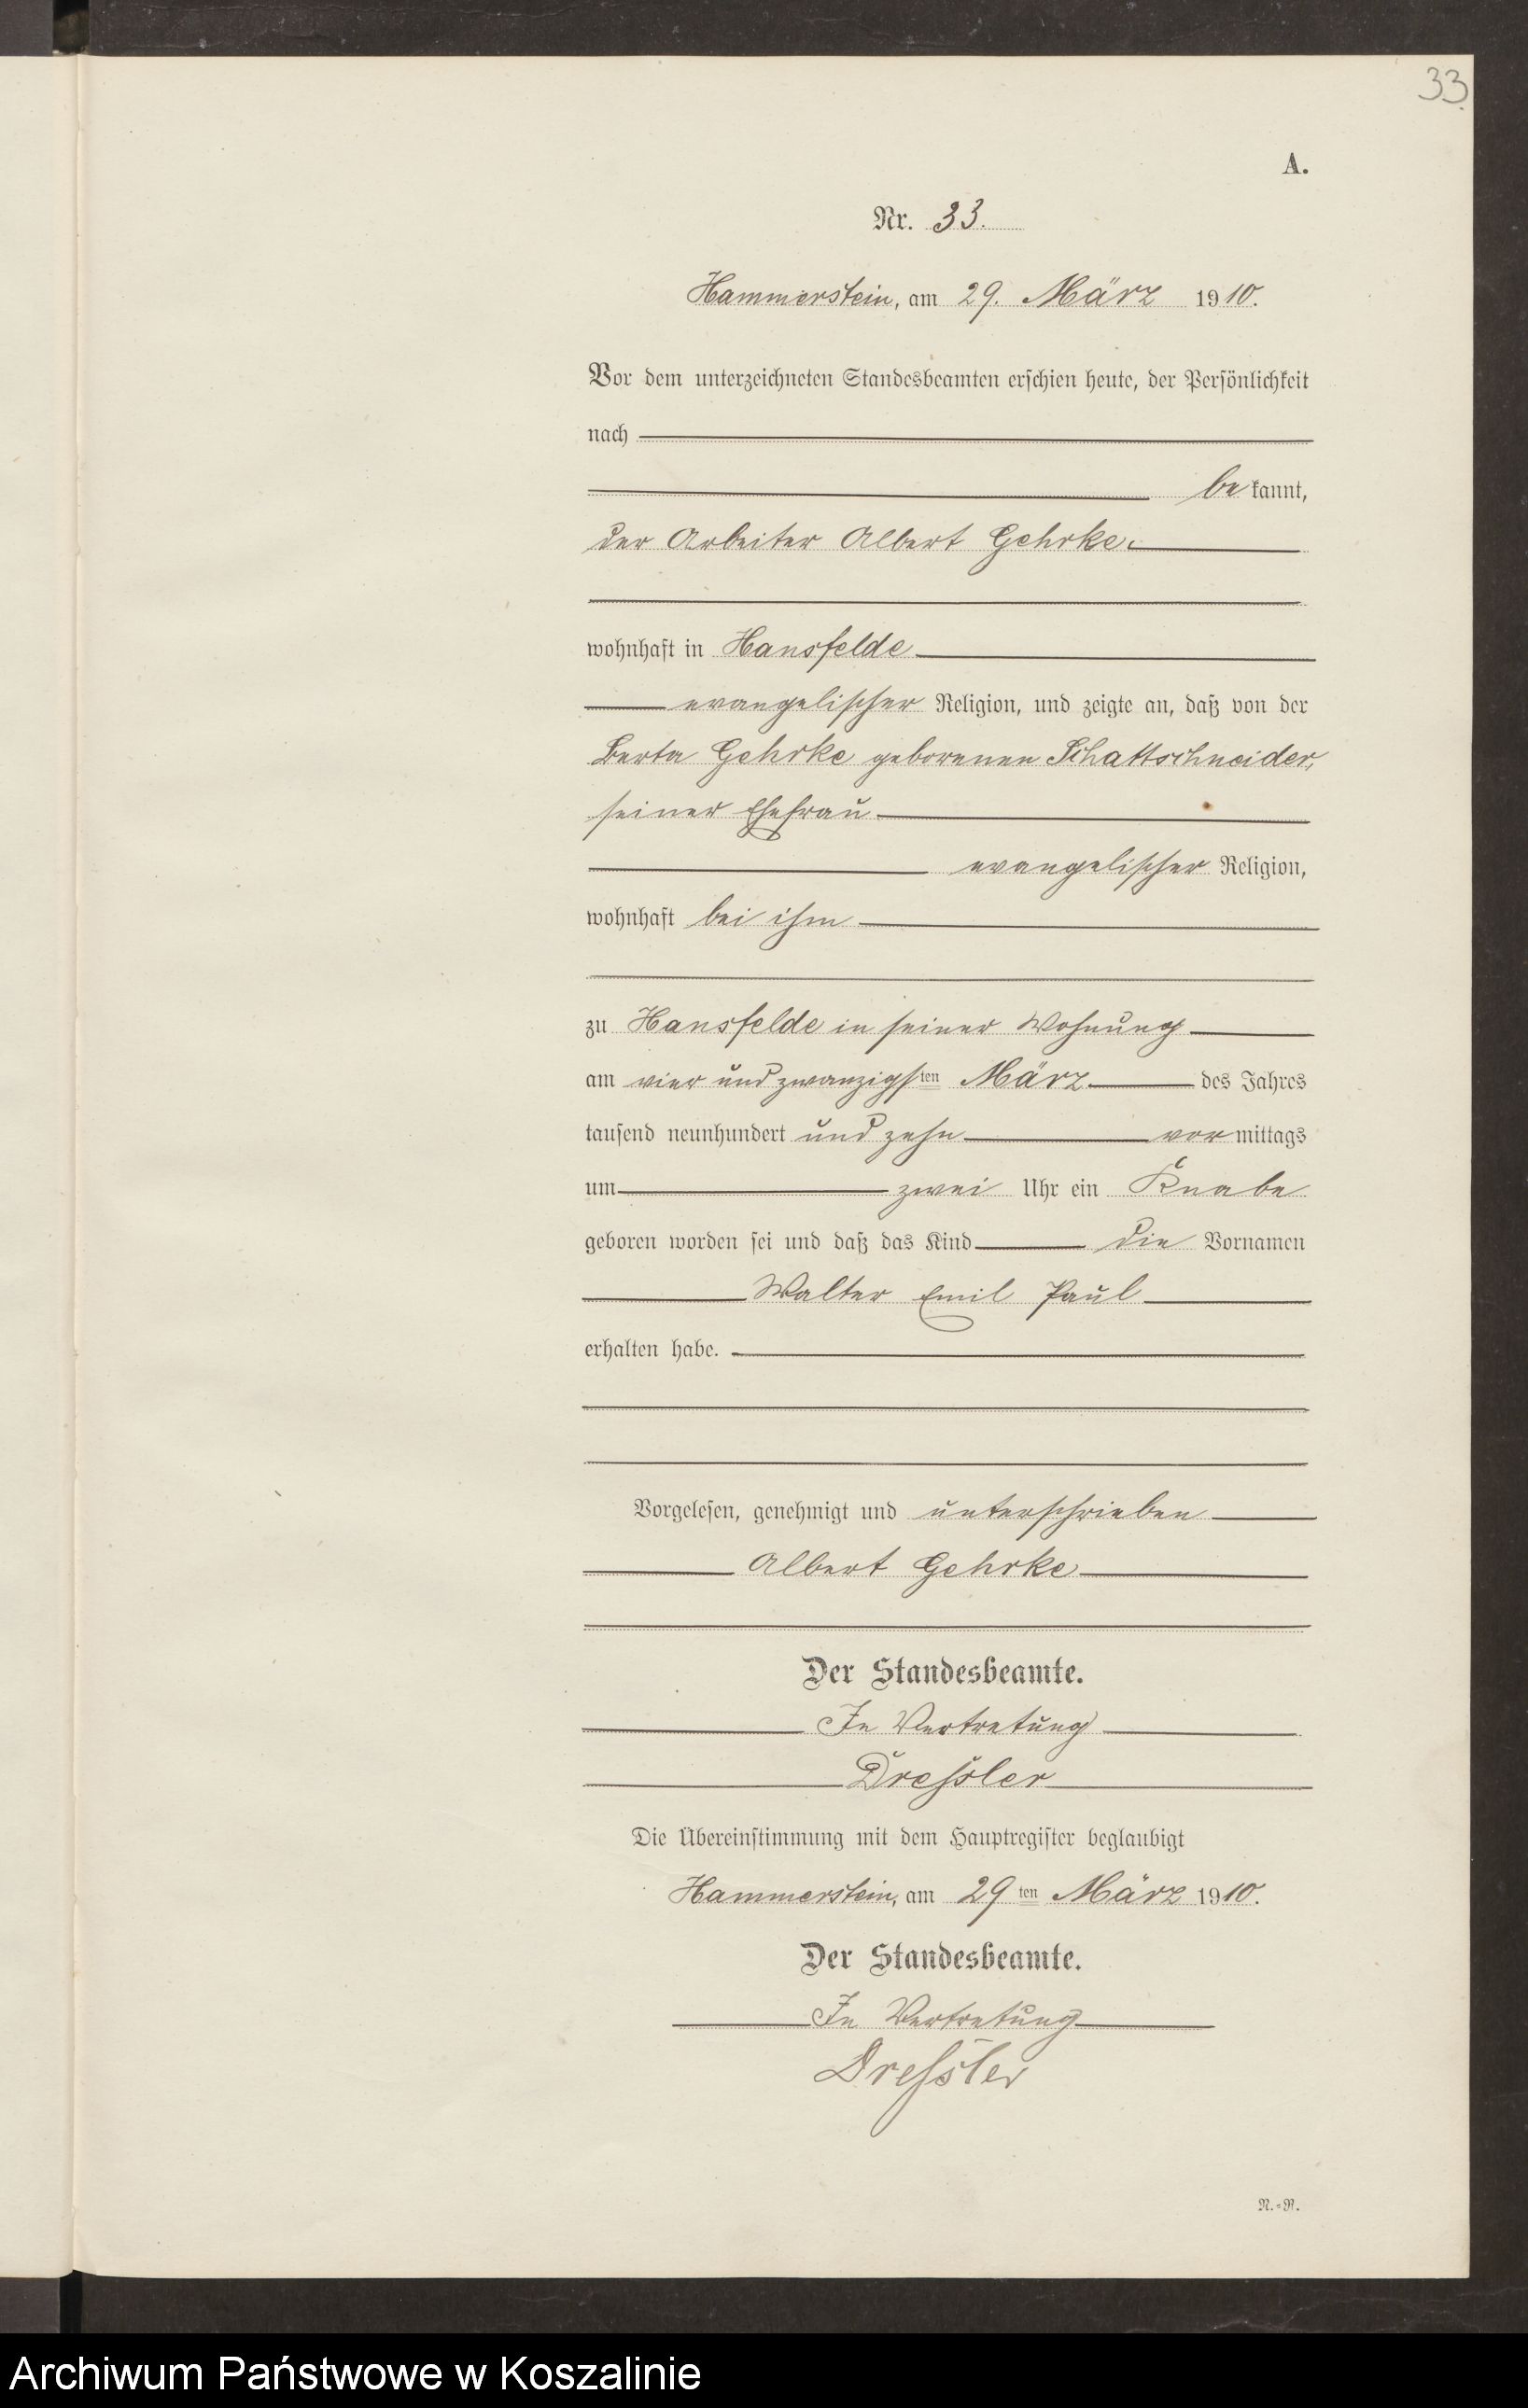 33.
A.
Nr. 33.
Hammerstein, am 29. März 1910.
Vor dem unterzeichneten Standesbeamten erschien heute, der Persönlichkeit
nach
bekannt,
der Arbeiter Albert Gehrke.
wohnhaft in Hansfelde
evangelischer Religion, und zeigte an, daß von der
Berta Gehrke geborenen Schattschneider,
seiner Ehefrau
evangelischer Religion,
wohnhaft bei ihm
zu Hansfelde in seiner Wohnung
am vier und zwanzigsten März des Jahres
tausend neunhundert und zehn vormittags
um zwei Uhr ein Knabe
geboren worden sei und daß das Kind die Vornamen
Walter Emil Paul
erhalten habe.
Vorgelesen, genehmigt und unterschrieben
Albert Gehrke
Der Standesbeamte.
In Vertretung
Dressler
Die Übereinstimmung mit dem Hauptregister beglaubigt
Hammerstein, am 29ten März 1910.
Der Standesbeamte.
In Vertretung
Dressler
N.=R.
Archiwum Państwowe w Koszalinie